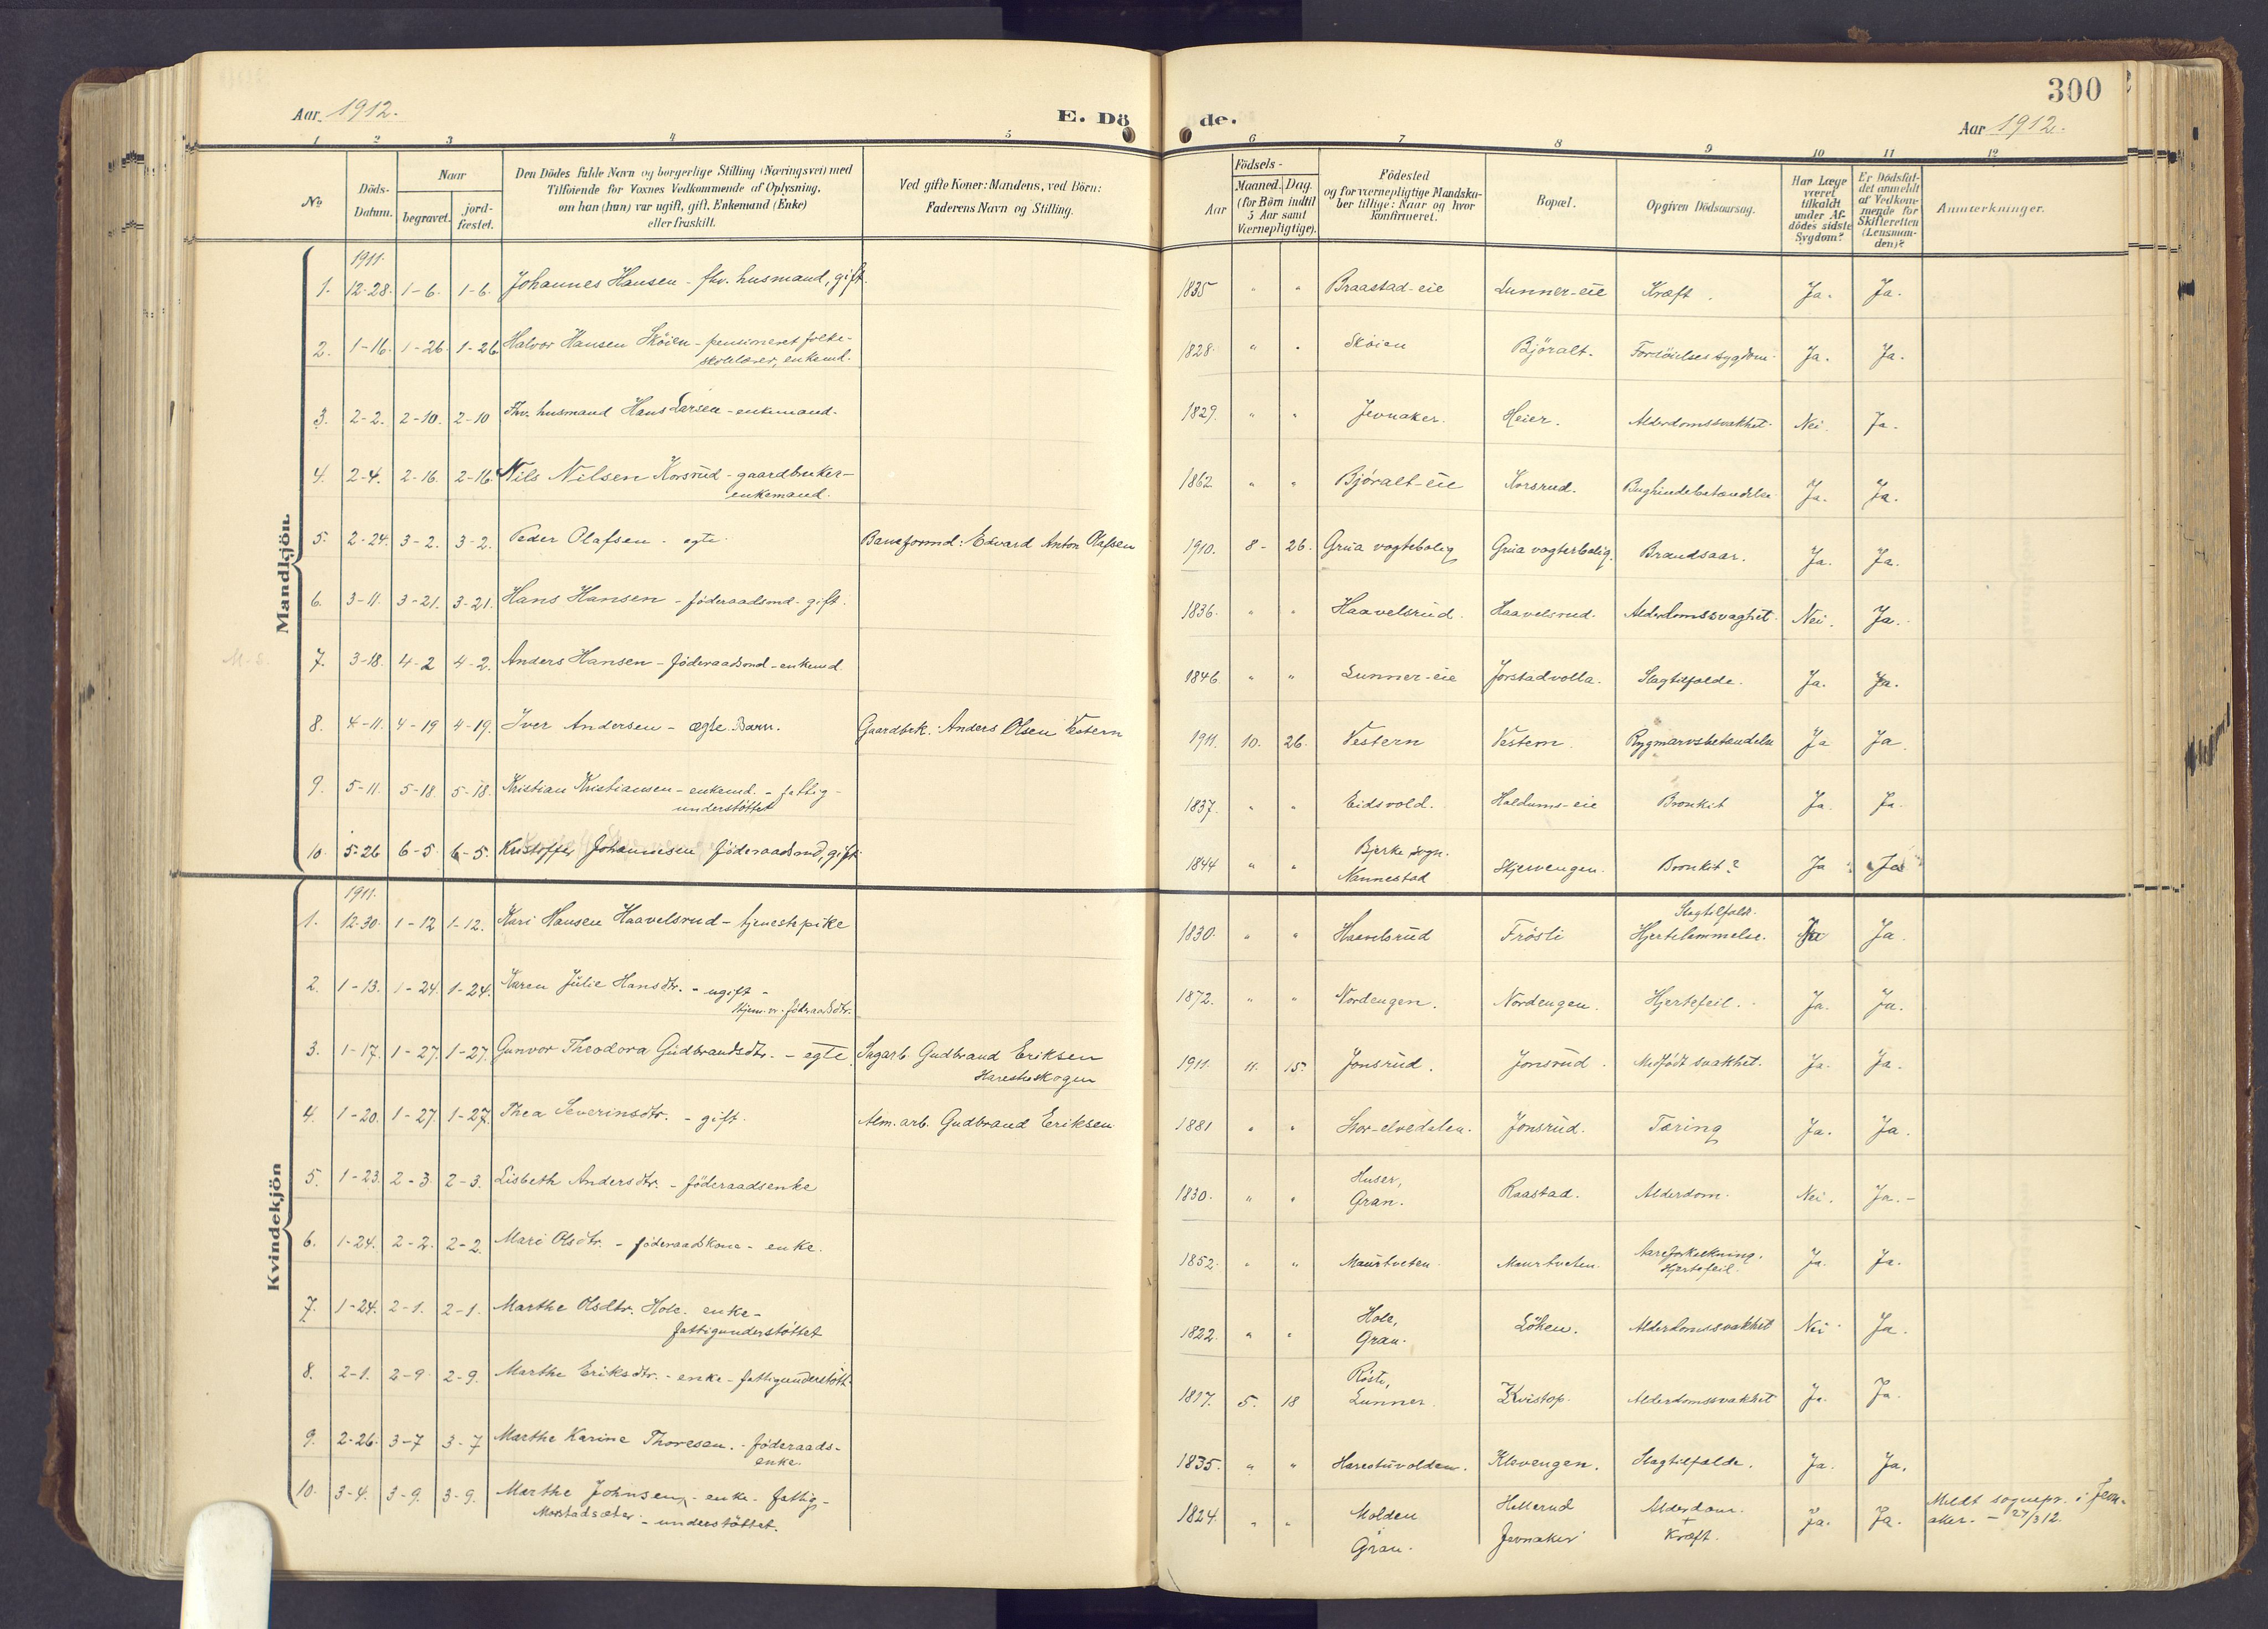 300
Aar 1912.
E. Dö de.
Aar 1912.
1 2 3 4 5 6 7 8 9 10 11 12
No
Döds-Datum.
Naar
begravet. jord-fæstet.
Den Dödes fulde Navn og borgerlige Stilling (Næringsvei) med
Tilföiende for Voxnes Vedkommende af Oplysning,
om han (hun) var ugift, gift, Enkemand (Enke)
eller fraskilt.
Ved gifte Koner: Mandens, ved Börn:
Faderens Navn og Stilling.
Födsels-
Aar
Maaned. Dag.
(for Börn indtil
5 Aar samt
Værnepligtige).
Födested
og for værnepligtige Mandska-
ber tillige: Naar og hvor
konfirmeret.
Bopæl.
Opgiven Dödsaarsag.
Har Læge
været
tilkaldt
under Af-
dödes sidste
Sygdom?
Er Dödsfal-
det anmeldt
af Vedkom-
mende for
Skifteretten
(Lensman-
den)?
Anmærkninger.
Mandkjön.
1911.
1. 12-28. 1-6. 1-6. Johannes Hansen - fhv. husmand, gift. 1835 " " Braastad-eie Lunner-eie Kræft. Ja. Ja.
2. 1-16. 1-26. 1-26. Halvor Hansen Skøien - pensioneret folke-
skolelærer, enkemd. 1828. " " Skøien Björalt. Fordöielsessygdom. Ja. Ja.
3. 2-2. 2-10. 2-10 Fhv. husmand Hans Larsen - enkemand. 1829. " " Jevnaker. Heier. Alderdomssvakhet. Nei. Ja.
4. 2-4. 2-16. 2-16. Nils Nilsen Korsrud - gaardbruker-
enkemand. 1862. " " Björalt-eie Korsrud. Bughindebetændelse. Ja. Ja.
5. 2-24. 3-2. 3-2. Peder Olafsen - egte. Baneformd: Edvard Anton Olafsen 1910. 8- 26. Grua vogtebolig Grua vogterbolig. Brandsaar. Ja. Ja.
6. 3-11. 3-21. 3-21. Hans Hansen - föderaadsmd - gift. 1836. " " Haavelsrud. Haavelsrud. Alderdomssvaghet. Nei. Ja.
M.S. 7. 3-18. 4-2 4-2. Anders Hansen - föderaadsmd - enkemd. 1846. " " Lunner-eie Jorstadvolla. Slagtilfælde. Ja. Ja.
8. 4-11. 4-19 4-19. Iver Andersen - ægte Barn. Gaardbrk: Anders Olsen Vestern 1911. 10. 26. Vestern Vestern. Rygmarvsbetændelse Ja Ja.
9. 5-11. 5-18. 5-18. Kristian Kristiansen - enkemd. - fattig-
understöttet 1837. " " Eidsvold. Haldums-eie Bronkit Ja. Ja.
10. 5-26 6-5. 6-5. Kristoffer Johannesen föderaadsmd, gift 1844 " " Bjerke sogn.
Nannestad Skjervengen. Bronkit? Ja Ja
Kvindekjön
1911.
1. 12-30. 1-12 1-12. Kari Hansen Haavelsrud - tjenestepike 1830. " " Haavelsrud Frösli Slagtilfæld.
Hjertelammelse. Ja Ja.
2. 1-13. 1-24. 1-24. Karen Julie Hansdtr. - ugift -
hjem. v. föderaadsdtr. 1872. " " Nordengen. Nordengen. Hjertefeil. Ja. Ja.
3. 1-17. 1-27. 1-27. Gunvor Theodora Gudbrandsdtr. - egte. Sagarb. Gudbrand Eriksen
Harestuskogen 1911. 11. 15. Jonsrud. Jonsrud. Medfödt svakhet. Ja. Ja.
4. 1-20. 1-27. 1-27. Thea Severinsdtr. - gift. Alm. arb. Gudbrand Eriksen 1881 " " Stor-elvedalen. Jonsrud. Tæring Ja. Ja.
5. 1-23. 2-3. 2-3. Lisbeth Andersdtr. - föderaadsenke 1830. " " Huser,
Gran. Raastad. Alderdom. Nei. Ja. -
6. 1-24. 2-2. 2-2. Mari Olsdtr. - föderaadskone - enke. 1852. " " Maurtveten Maurtveten. Aareforkalkning.
Hjertefeil. Ja. Ja.
7. 1-24. 2-1. 2-1. Marthe Olsdtr. Hole. enke-
fattigunderstöttet 1822. " " Hole,
Gran. Löken. Alderdomssvakhet Nei. Ja.
8. 2-1. 2-9 2-9. Marthe Eriksdtr. - enke - fattigunderstött. 1817. 5. 18 Röste,
Lunner. Kvistop. Alderdomssvakhet Ja. Ja.
9. 2-26. 3-7 3-7 Marthe Karine Thoresen. - föderaads-
enke. 1835. " " Harestuvolden. Klevengen. Slagtilfælde. Ja. Ja.
10. 3-4. 3-9. 3-9. Marthe Johnsen, - enke - fattig-
Morstadsæter. - understöttet. 1824. " " Molden
Gran. Hellerud
Jevnaker Alderdom.
+
Kræft. Ja. Ja. Meldt sognepr. i Jevn-
aker. - 27/3 12.